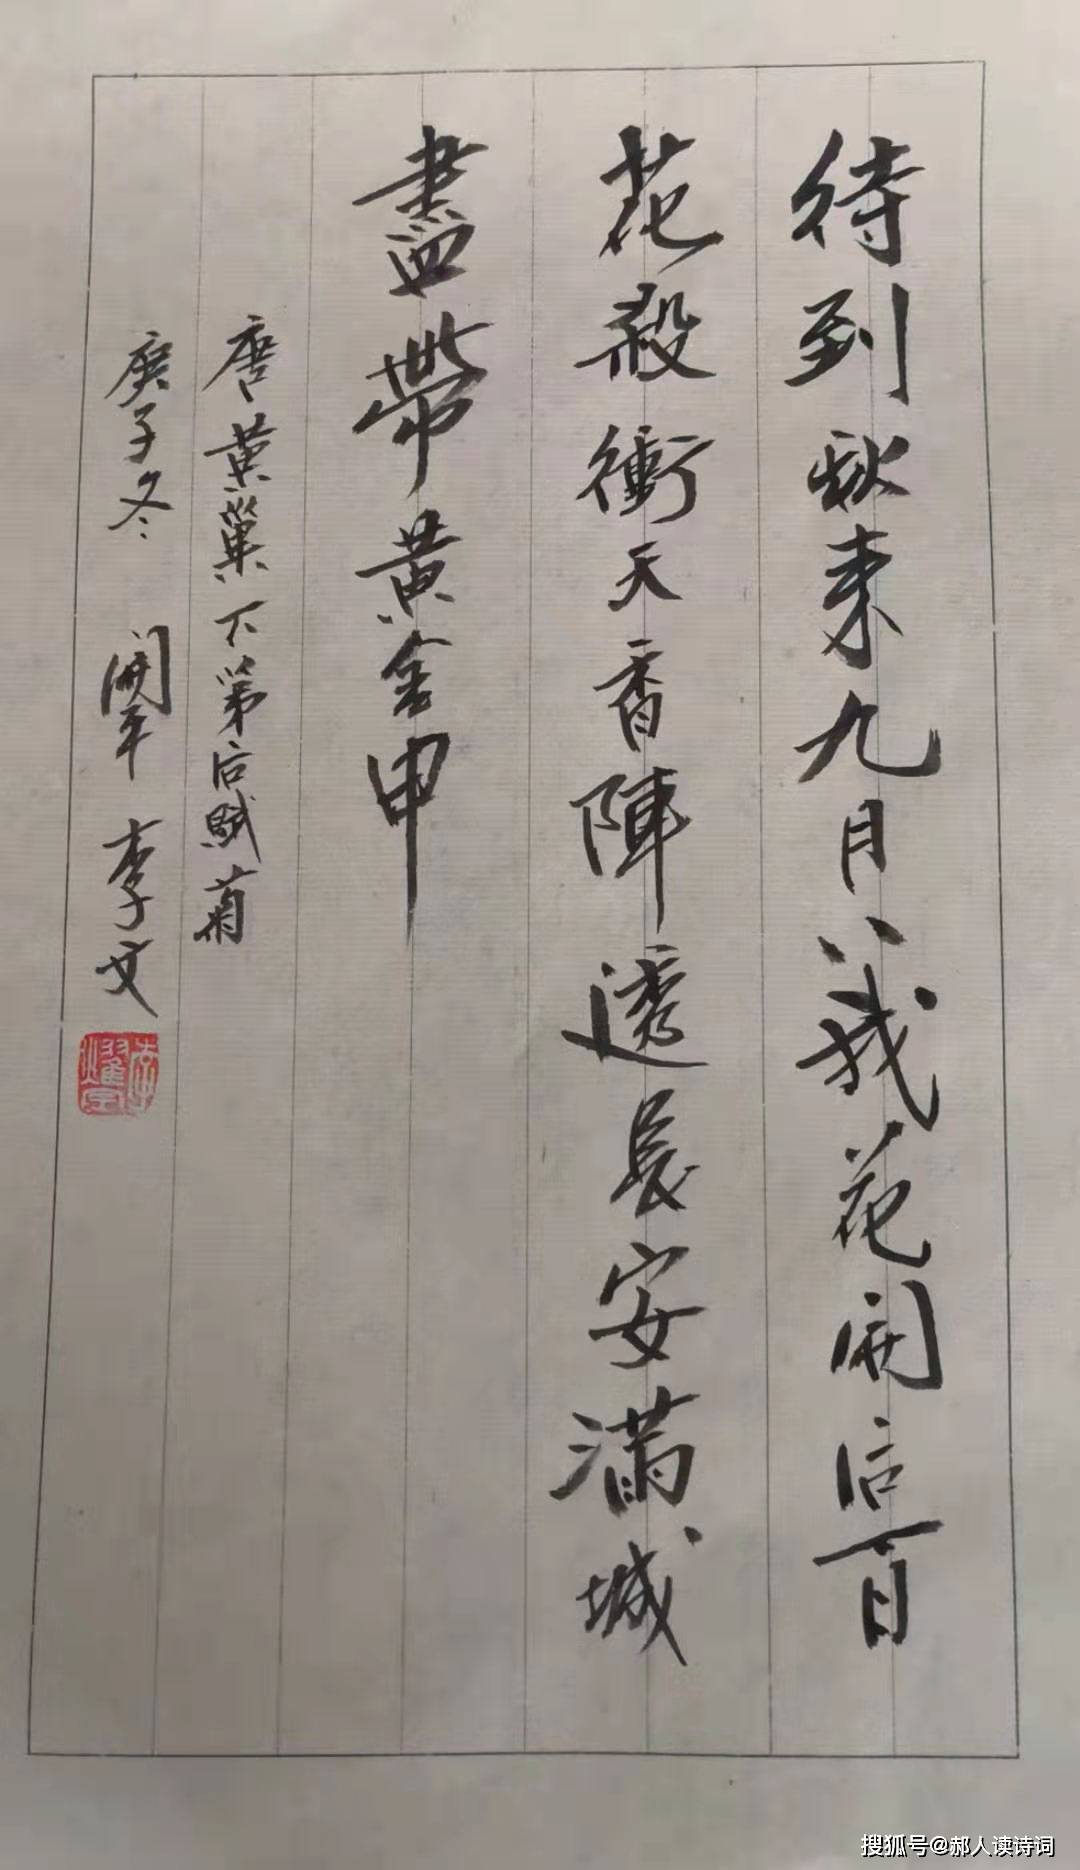 待到秋来九月八我花開后百
花殺衝天香陣透長安滿城
盡帶黃金甲
唐黃巢不第后賦菊
庚子冬 開平 李文
搜狐号@郝人读诗词